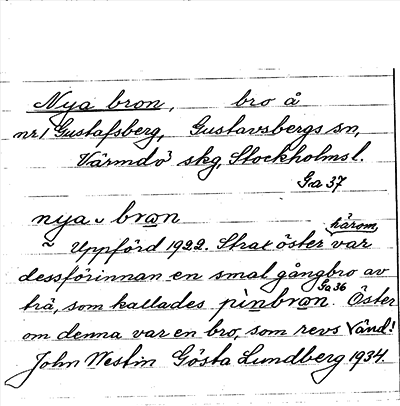 Nya bron, bro å
nr 1 Gustafsberg, Gustavsbergs sn,
Värmdö skg, Stockholms l.
Ga 37
nya ᴗ bron
~ Uppförd 1922. Strax öster härom var
dessförinnan en smal gångbro av
trä, som kallades pinbron. Ga 36 Öster
om denna var en bro, som revs Vänd!
John Westin Gösta Lundberg 1934.